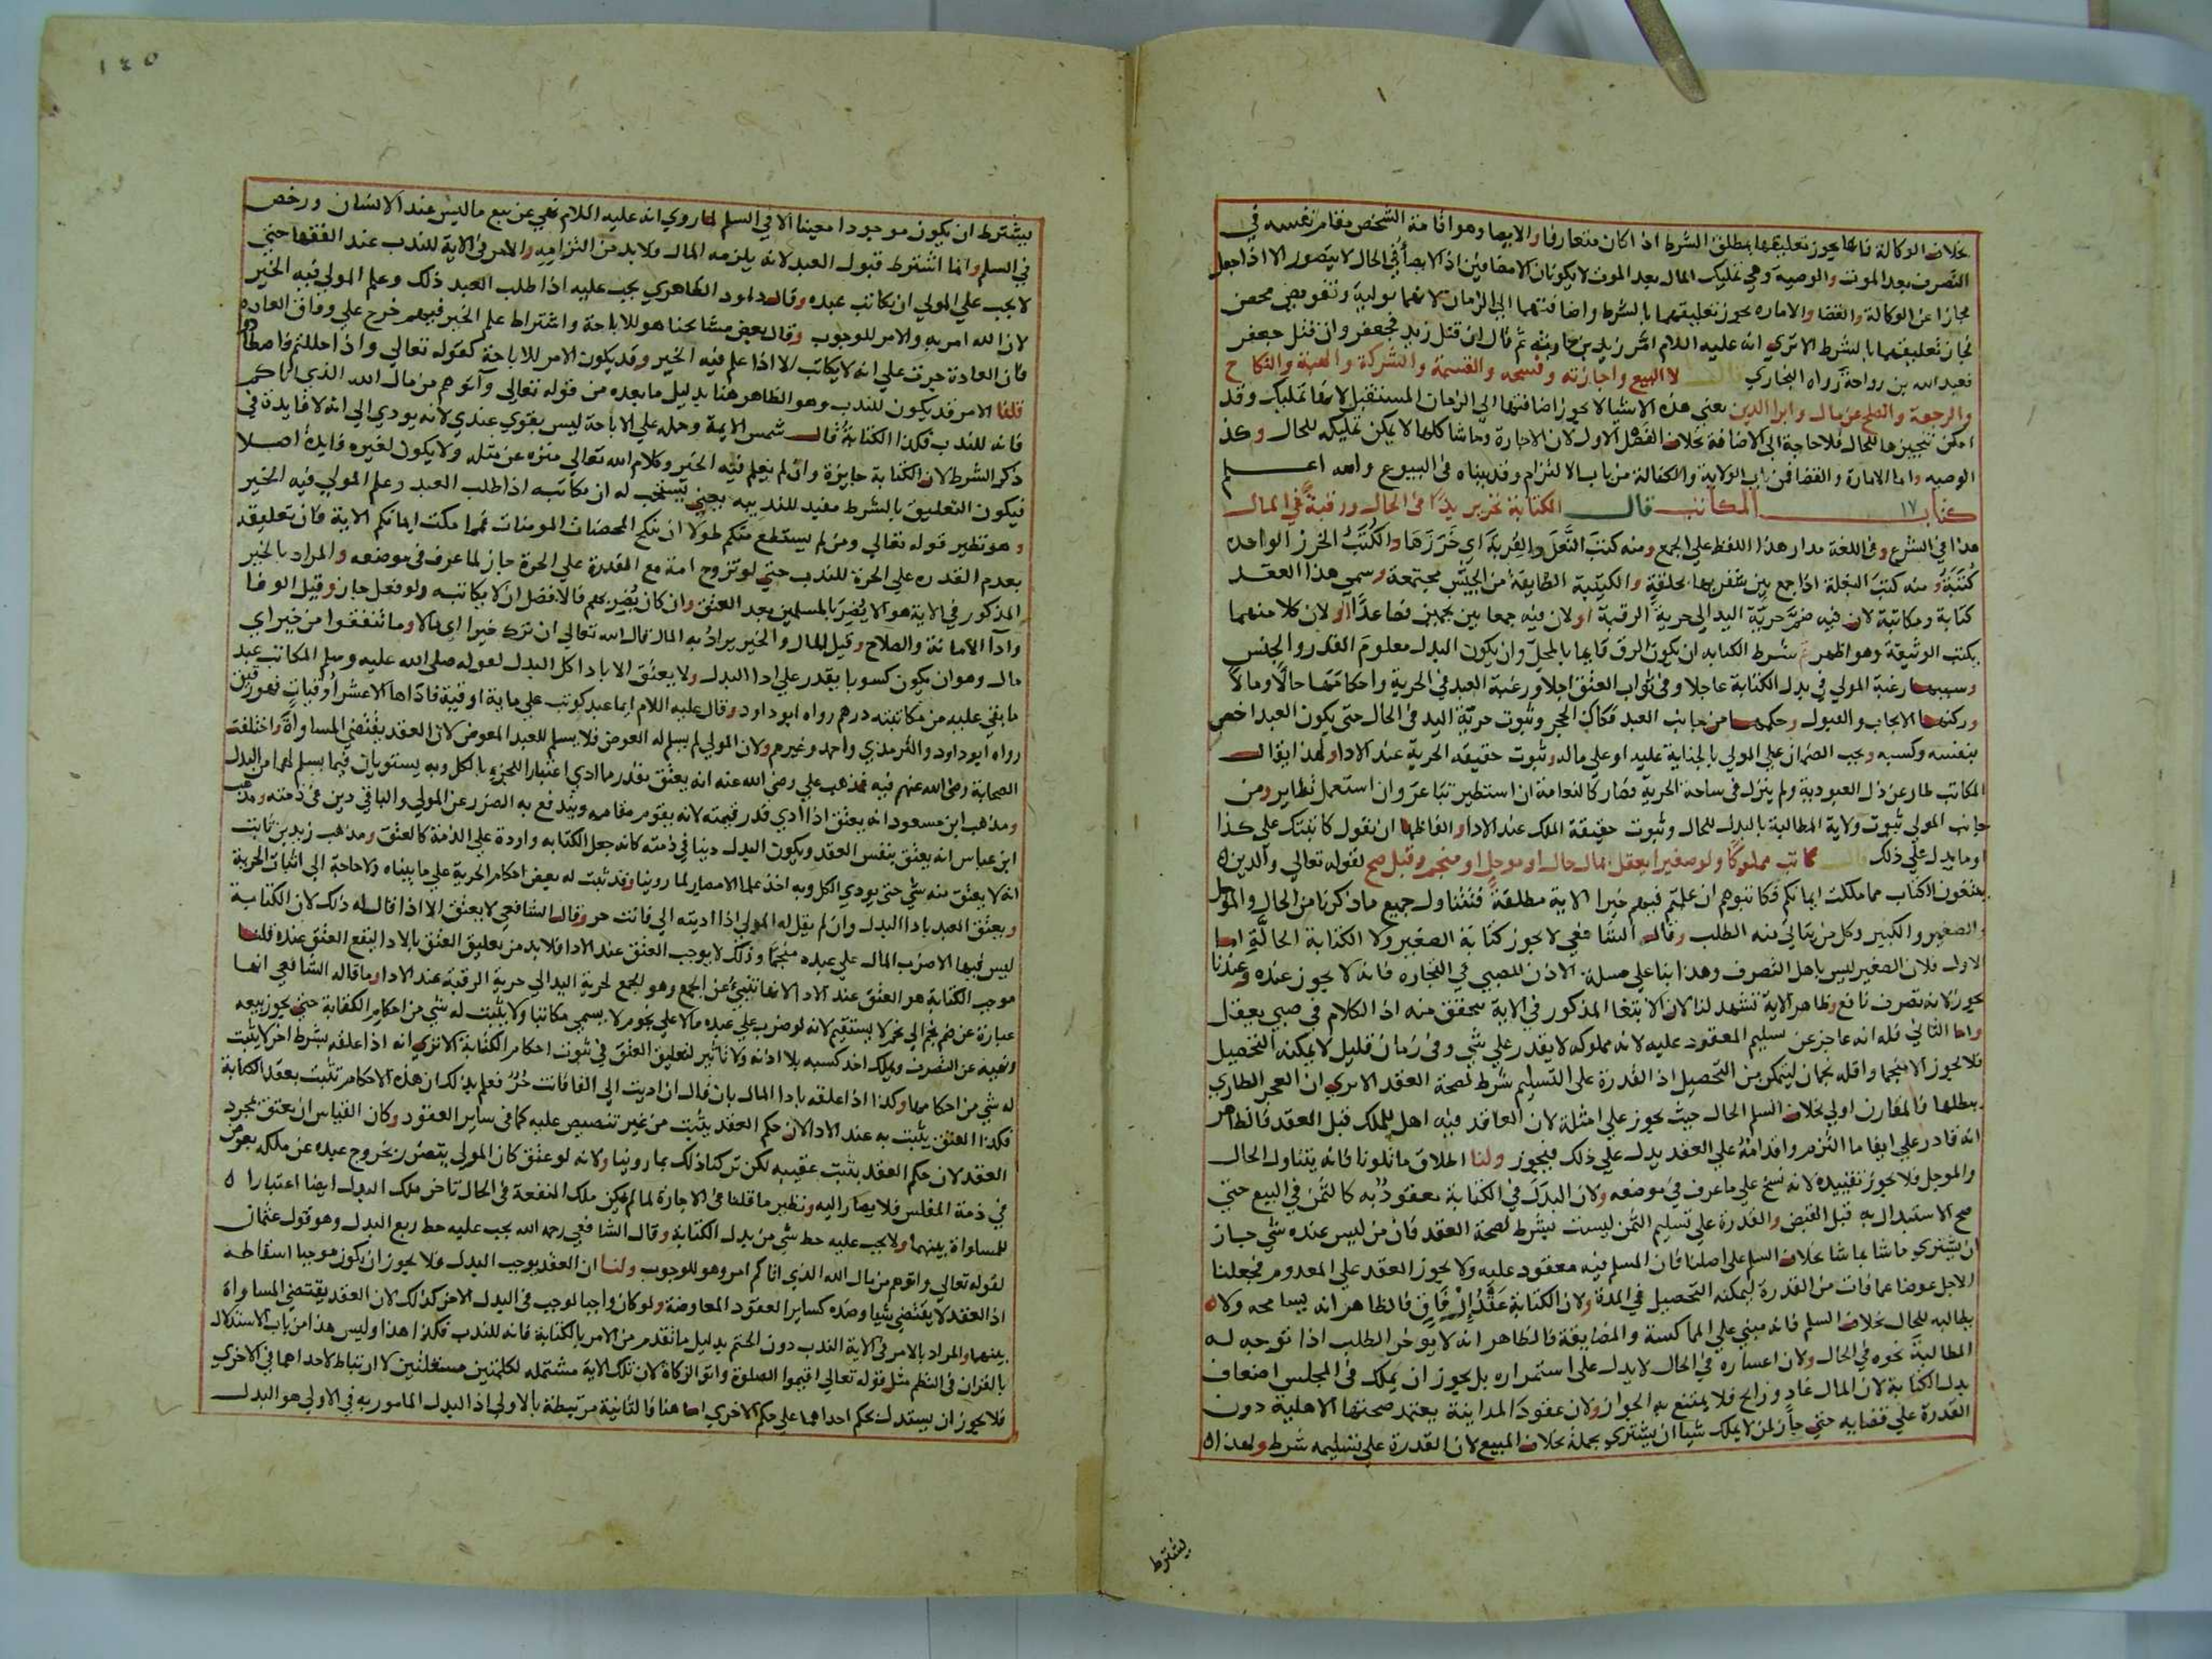 بخلاف الوكالة فانها يجوز تعليقها بمطلق الشرط اذا كان متعارفا والايصا وهو اقامة الشخص مقام نفسه في
التصرف بعد الموت والوصية وهي تمليك المال بعد الموت لا يكونان الا مضافين اذ الايصا في الحال لا يتصور الا اذا جعل
مجازا عن الوكالة والقضا والامارة يجوز تعليقهما بالشرط واضافتهما الي الزمان لانهما تولية وتفويض محض
فجاز تعليقهما بالشرط الا تري انه عليه اللام امر زيد بن حارثه ثم قال ان قتل زيد فجعفر وان قتل جعفر
فعبد الله بن رواحة رواه البخاري قال لا البيع واجازته وفسخه والقسمة والشركة والهبة والنكاح
والرجعة والصلح عن مال وابرا الدين يعني هذه الاشيا لا يجوز اضافتها الي الزمان المستقبل لانها تمليك وقد
امكن تنجيزها للحال فلا حاجة الي الاضافة بخلاف الفصل الاول لان الاجارة وما شاكلها لا يمكن تمليكه للحال وكذا
الوصيه واما الامارة والقضا فمن باب الولاية والكفالة من باب الالتزام وقد بيناه في البيوع والله اعلم
كتاب ١٧ المكاتب قال الكتابة تحرير يدًا في الحال ورقبةً في المال
هذا في الشرع وفي اللغة مدار هذا اللفظ علي الجمع ومنه كتب النعل والقربة اي خرزها والكتب الخرز الواحدة
كتبة ومنه كتب البغلة اذا جمع بين شفريها بحلقة والكتيبة الطايفة من الجيش مجتمعة وسمي هذا العقد
كتابة ومكاتبة لان فيه ضم حرية اليد الي حرية الرقبة او لان فيه جمعا بين نجمين فصاعدًا او لان كلا منهما
يكتب الوثيقة وهو اظهر شرط الكتابه ان يكون الرق قايما بالمحل وان يكون البدل معلوم القدر والجنس
وسببها رغبة المولي في بدل الكتابة عاجلا وفي ثواب العتق اجلا ورغبة العبد في الحرية واحكامها حالًا ومالًا
وركنها الايجاب والقبول وحكمها من جانب العبد فكاك الحجر وثبوت حرية اليد في الحال حتي يكون العبد اخص
بنفسه وكسبه ويجب الضمان علي المولي بالجناية عليه او علي ماله وثبوت حقيقه الحرية عند الادا ولهذا يقال
المكاتب طار عن ذل العبودية ولم ينزل في ساحة الحرية فصار كالنعامة ان استطير تباعر وان استعمل تطاير ومن
جانب المولي ثبوت ولاية المطالبة بالبدل للحال وثبوت حقيقة الملك عند الادا والفاظها ان يقول كاتبتك علي كذا
او ما يدل علي ذلك قال كاتب مملوكًا ولو صغيرا يعقل بمال حال او موجل او منجم وقبل صح لقوله تعالي والذين
يبتغون الكتاب مما ملكت ايمانكم فكاتبوهم ان علمتم فيهم خيرا الاية مطلقة فتتناول جميع ما ذكرنا من الحال والموجل
والصغير والكبير وكل من يتاتي منه الطلب وقال الشافعي لا يجوز كتابة الصغير ولا الكتابة الحالة اما
الاول فلان الصغير ليس باهل التصرف وهذا بنا علي مسلة الاذن للصبي في التجارة فانه لا يجوز عنده وعندنا
يجوز لانه تصرف نافع وظاهر الاية تشهد لنا لان الابتغا المذكور في الاية متحقق منه اذ الكلام في صبي يعقل
واما الثاني فله انه عاجز عن تسليم المعقود عليه لانه مملوكه لا يقدر علي شي وفي زمان قليل لا يمكنه التحصيل
فلا يجوز الا منجما واقله نجمان ليتمكن من التحصيل اذ القدرة علي التسليم شرط لصحة العقد الا يري ان العجز الطاري
يبطلها فالمقارن اولي بخلاف السلم الحال حيث يجوز علي امثلة لان العاقد فيه اهل للملك قبل العقد فالظاهر
انه قادر علي ايفا ما التزم واقدامه علي العقد يدل علي ذلك فيجوز ولنا اطلاق ما تلونا فانه يتناول الحال
والموجل فلا يجوز تقييده لانه نسخ علي ما عرف في موضعه ولان البدل في الكتابة معقود به كالثمن في البيع حتي
صح الاستبدال به قبل القبض والقدرة علي تسليم الثمن ليست بشرط لصحة العقد فان من ليس عنده شي جاز
ان يشتري ما شا بما شا بخلاف السلم علي اصلنا فان المسلم فيه معقود عليه ولا يجوز العقد علي المعدوم فجعلنا
الاجل عوضا عما فات من القدرة ليمكنه التحصيل في المدة ولان الكتابة عقد ارفاق فالظاهر انه يسامحه ولا
يطالبه للحال بخلاف السلم فانه مبني علي المماكسة والمضايقة فالظاهر انه لا يوخر الطلب اذا توجه له
المطالبة نحوه في الحال ولان اعساره في الحال لا يدل علي استمراره بل يجوز ان يملك في المجلس اضعاف
بدل الكتابة لان المال غاد ورايح فلا يمتنع به الجواز ولان عقود المداينة يعتمد صحتها الاهلية دون
القدرة علي قضايه حتي جاز لمن لا يملك شيا ان يشتري بجملة بخلاف المبيع لان القدرة علي تسليمه شرط ولهذا
يشترط
١٤٥
يشترط ان يكون موجودا معينا الا في السلم لما روي انه عليه اللام نهي عن بيع ما ليس عند الانسان ورخص
في السلم وانما اشترط قبول العبد لانه يلزمه المال فلا بد من التزامه والامر في الاية للندب عند الفقها حتي
لا يجب علي المولي ان يكاتب عبده وقال داود الظاهري يجب عليه اذا طلب العبد ذلك وعلم المولي فيه الخير
لان الله امر به والامر للوجوب وقال بعض مشايخنا هو للاباحة واشتراط علم الخير فيهم خرج علي وفاق العاده
فان العادة جرت علي انه لا يكاتب الا اذا علم فيه الخير وقد يكون الامر للاباحة كقوله تعالي واذا حللتم فاصطادوا
قلنا الامر قد يكون للندب وهو الظاهر هنا بدليل ما بعده من قوله تعالي وآتوهم من مال الله الذي اتاكم
فانه للندب فكذا الكتابة قال شمس الايمة وحمله علي الاباحة ليس بقوي عندي لانه يودي الي انه لا فايدة في
ذكر الشرط لان الكتابة جايزة وان لم يعلم فيه الخير وكلام الله تعالي منزه عن مثله ولا يكون لغيره فايدة اصلا
فيكون التعليق بالشرط مفيد للندبيه يعني يستحب له ان يكاتبه اذا طلب العبد وعلم المولي فيه الخير
وهو نظير قوله تعالي ومن لم يستطع منكم طولا ان ينكح المحصنات المومنات فمما ملكت ايمانكم الاية فان تعليقه
بعدم القدره علي الحرة للندب حتي لو تزوج امة مع القدرة علي الحرة جاز لما عرف في موضعه والمراد بالخير
المذكور في الاية هو الا يضر بالمسلمين بعد العتق وان كان يضر بهم فالافضل ان لا يكاتبه ولو فعل جاز وقيل الوفا
وادا الامانة والصلاح وقيل المال والخير يراد به المال قال الله تعالي ان ترك خيرا اي مالا وما تنفقوا من خير اي
مال وهو ان يكون كسوبا يقدر علي ادا البدل ولا يعتق الا بادا كل البدل لقوله صلي الله عليه وسلم المكاتب عبد
ما بقي عليه من مكاتبته درهم رواه ابو داود وقال عليه اللام ايما عبد كوتب علي ماية اوقية فاداها الا عشر اوقيات فهو رقيق
رواه ابو داود والترمذي واحمد وغيرهم ولان المولي لم يسلم له العوض فلا يسلم للعبد المعوض لان العقد يقتضي المساواة واختلفت
الصحابة رضي الله عنهم فيه فمذهب علي رضي الله عنه انه يعتق بقدر ما ادي اعتبارا للجزء بالكل وبه يستويان فيما يسلم لهما من البدل
ومذهب ابن مسعود انه يعتق اذا ادي قدر قيمته لانه يقوم مقامه ويندفع به الضرر عن المولي والباقي دين في ذمته ومذهب
ابن عباس انه يعتق بنفس العقد ويكون البدل دينا في ذمته كانه جعل الكتابه واردة علي الذمة كالعتق ومذهب زيد بن ثابت
انه لا يعتق منه شي حتي يودي الكل وبه اخذ علما الامصار لما روينا وقد ثبت له بعض احكام الحرية علي ما بيناه ولا حاجة الي اثبات الحرية
ويعتق العبد بادا البدل وان لم يقل له المولي اذا اديته الي فانت حر وقال الشافعي لا يعتق الا اذا قال له ذلك لان الكتابة
ليس فيها الا ضرب المال علي عبده منجما وذلك لا يوجب العتق عند الادا فلا بد من تعليق العتق بالادا ليقع العتق عنده قلنا
موجب الكتابة هو العتق عند الادا لانها تنبيء عن الجمع وهو الجمع لحرية اليد الي حرية الرقبة عند الادا وما قاله الشافعي انها
عبارة عن ضم نجم الي نجم لا يستقيم لانه لو ضرب علي عبده مالا علي نجوم لا يسمي مكاتبا ولا يثبت له شي من احكام الكتابة حتي يجوز بيعه
ونهيه عن التصرف ويملك اخذ كسبه بلا اذنه ولا تاثير لتعليق العتق في ثبوت احكام الكتابة الا تري انه اذا علقه بشرط اخر لا يثبت
له شي من احكامها وكذا اذا علقه بادا المال بان قال ان اديت الي الفا فانت حر فعلم بذلك ان هذه الاحكام تثبت بعقد الكتابة
فكذا العتق يثبت به عند الادا لان حكم العقد يثبت من غير تنصيص عليه كما في ساير العقود وكان القياس ان يعتق بمجرد
العقد لان حكم العقد يثبت عقيبه لكن تركنا ذلك بما روينا ولانه لو عتق كان المولي يتضرر بخروج عبده عن ملكه بعوض
في ذمة المفلس فلا يصار اليه ونظير ما قلنا في الاجارة لما لم يمكن ملك المنفعة في الحال تاخر ملك البدل ايضا اعتبارا
للمساواة بينهما ولا يجب عليه حط شي من بدل الكتابة وقال الشافعي رحمه الله يجب عليه حط ربع البدل وهو قول عثمان
لقوله تعالي واتوهم من مال الله الذي اتاكم امر وهو للوجوب ولنا ان العقد يوجب البدل فلا يجوز ان يكون موجبا اسقاطه
اذ العقد لا يقتضي شيا وضده كساير العقود المعاوضة ولو كان واجبا لوجب في البدل الاخر كذلك لان العقد يقتضي المساواة
بينهما والمراد بالامر في الاية الندب دون الحتم بدليل ما تقدم من الامر بالكتابة فانه للندب فكذا هذا وليس هذا من باب الاستدلال
بالقران في النظم مثل قوله تعالي اقيموا الصلوة واتوا الزكاة لان تلك الاية مشتمله لكلمتين مستقلتين لا ارتباط لاحداهما في الاخري
فلا يجوز ان يستدل بحكم احداهما علي حكم الاخري اما هنا فالثانية مرتبطة بالاولي اذ البدل المامور به في الاولي هو البدل